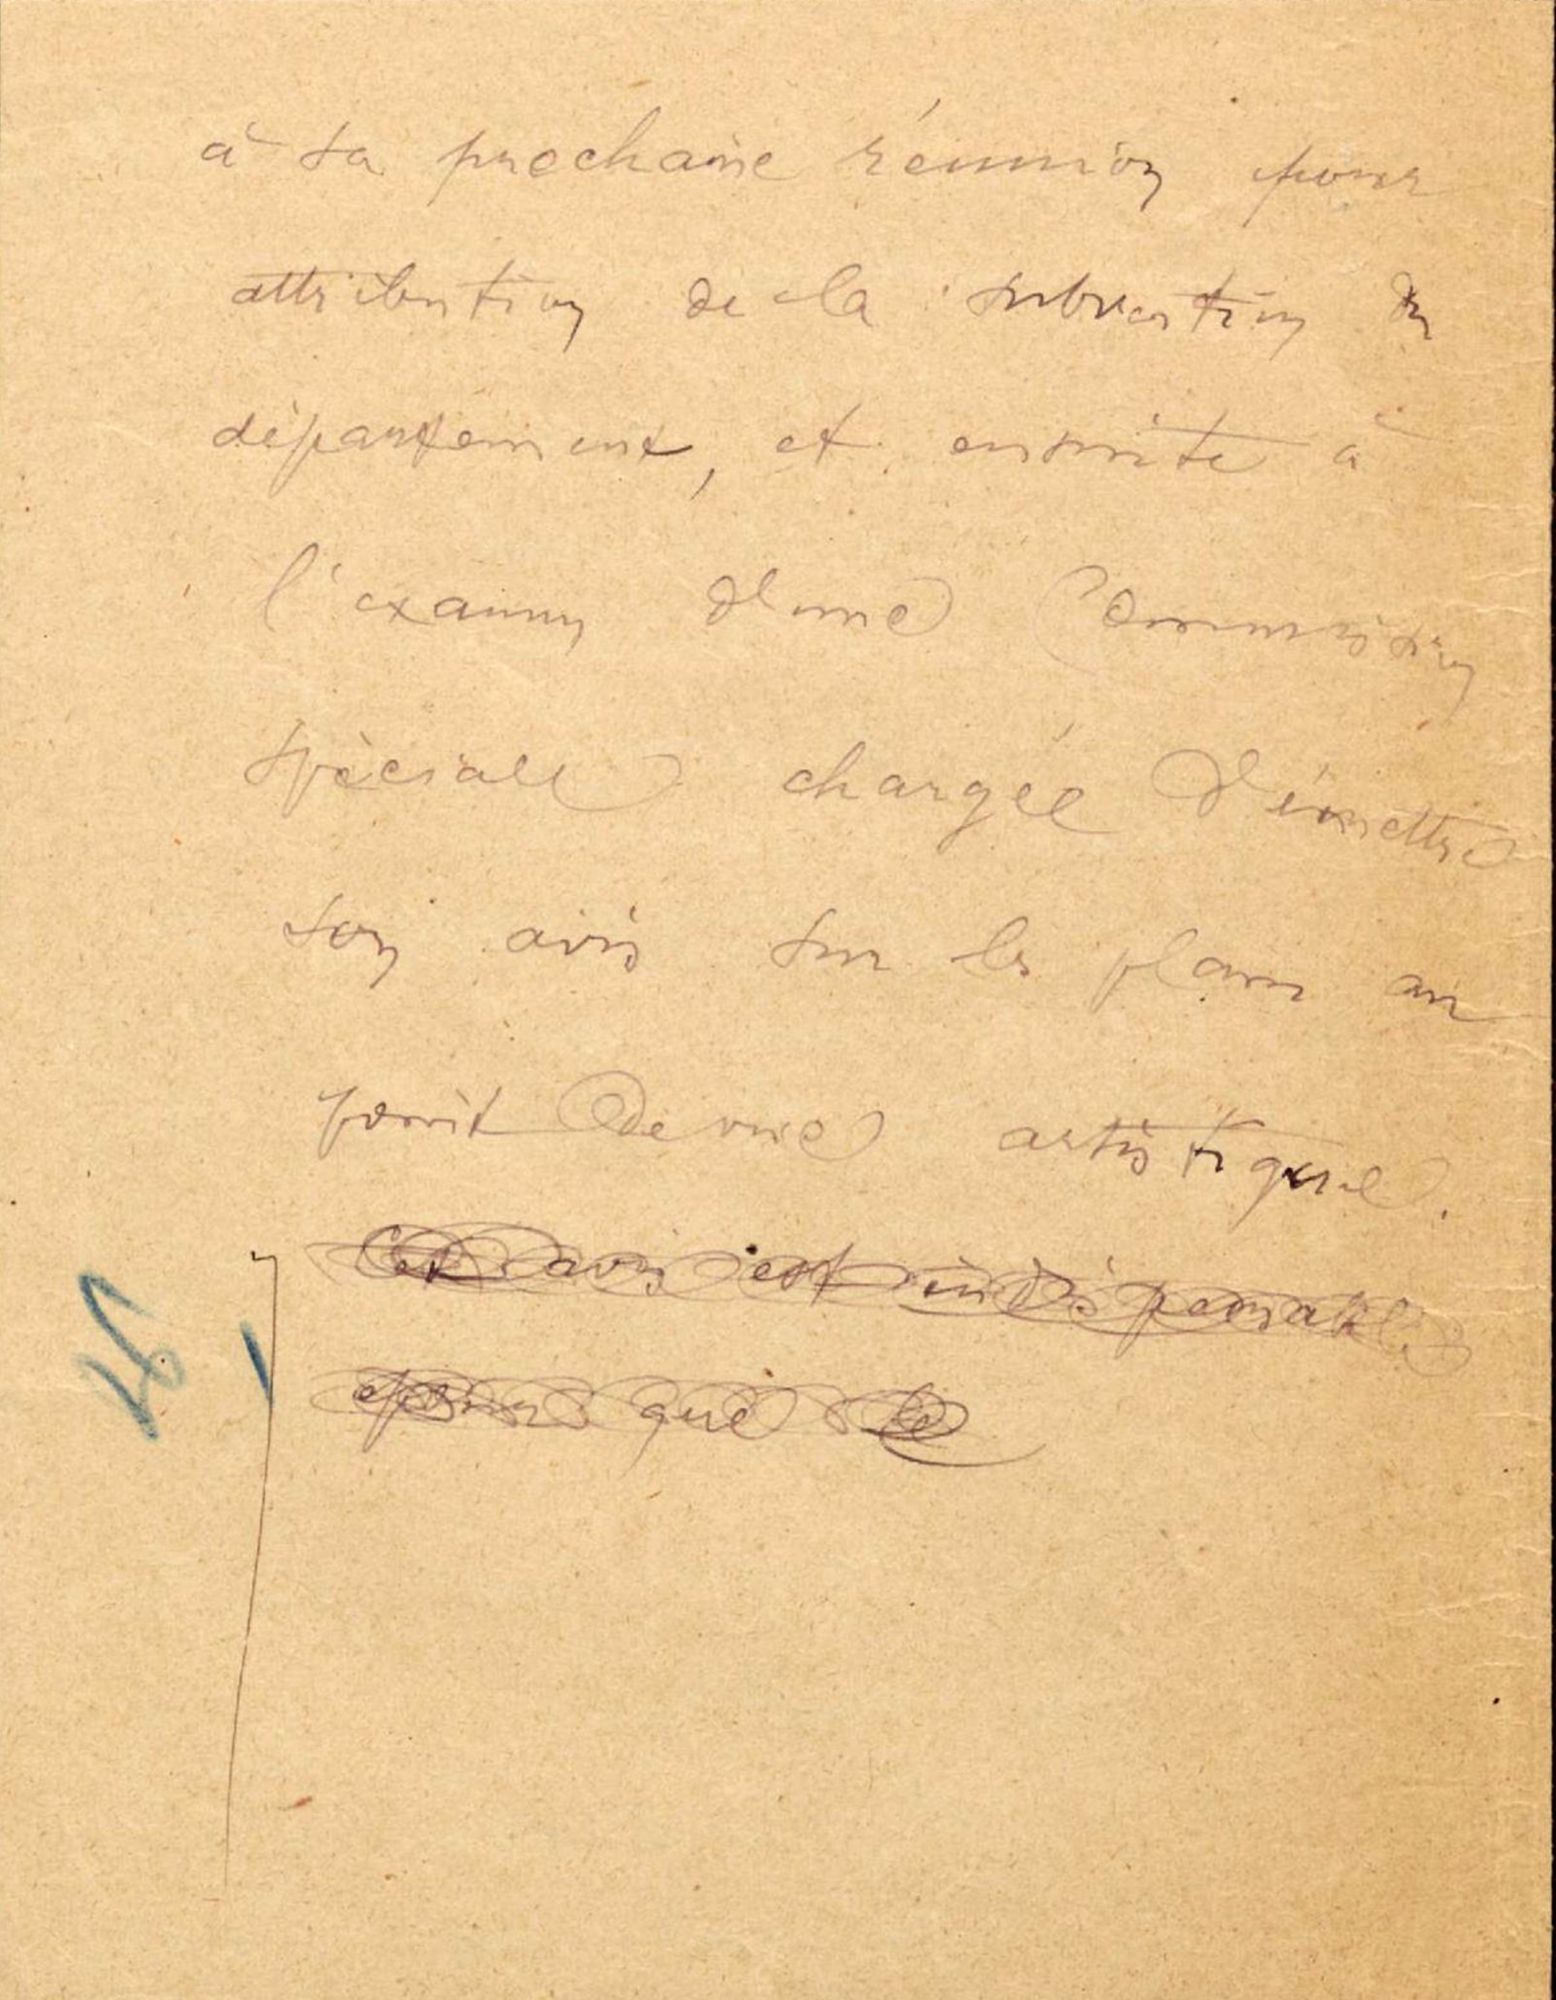 à sa prochaine réunion pour
attribution de la subvention du
département, et ensuite à
l'examen d'une Commission
spéciale chargée d'émettre
son avis sur les plans au
point de vue artistique.
Cet avis est indispensable
pour que le